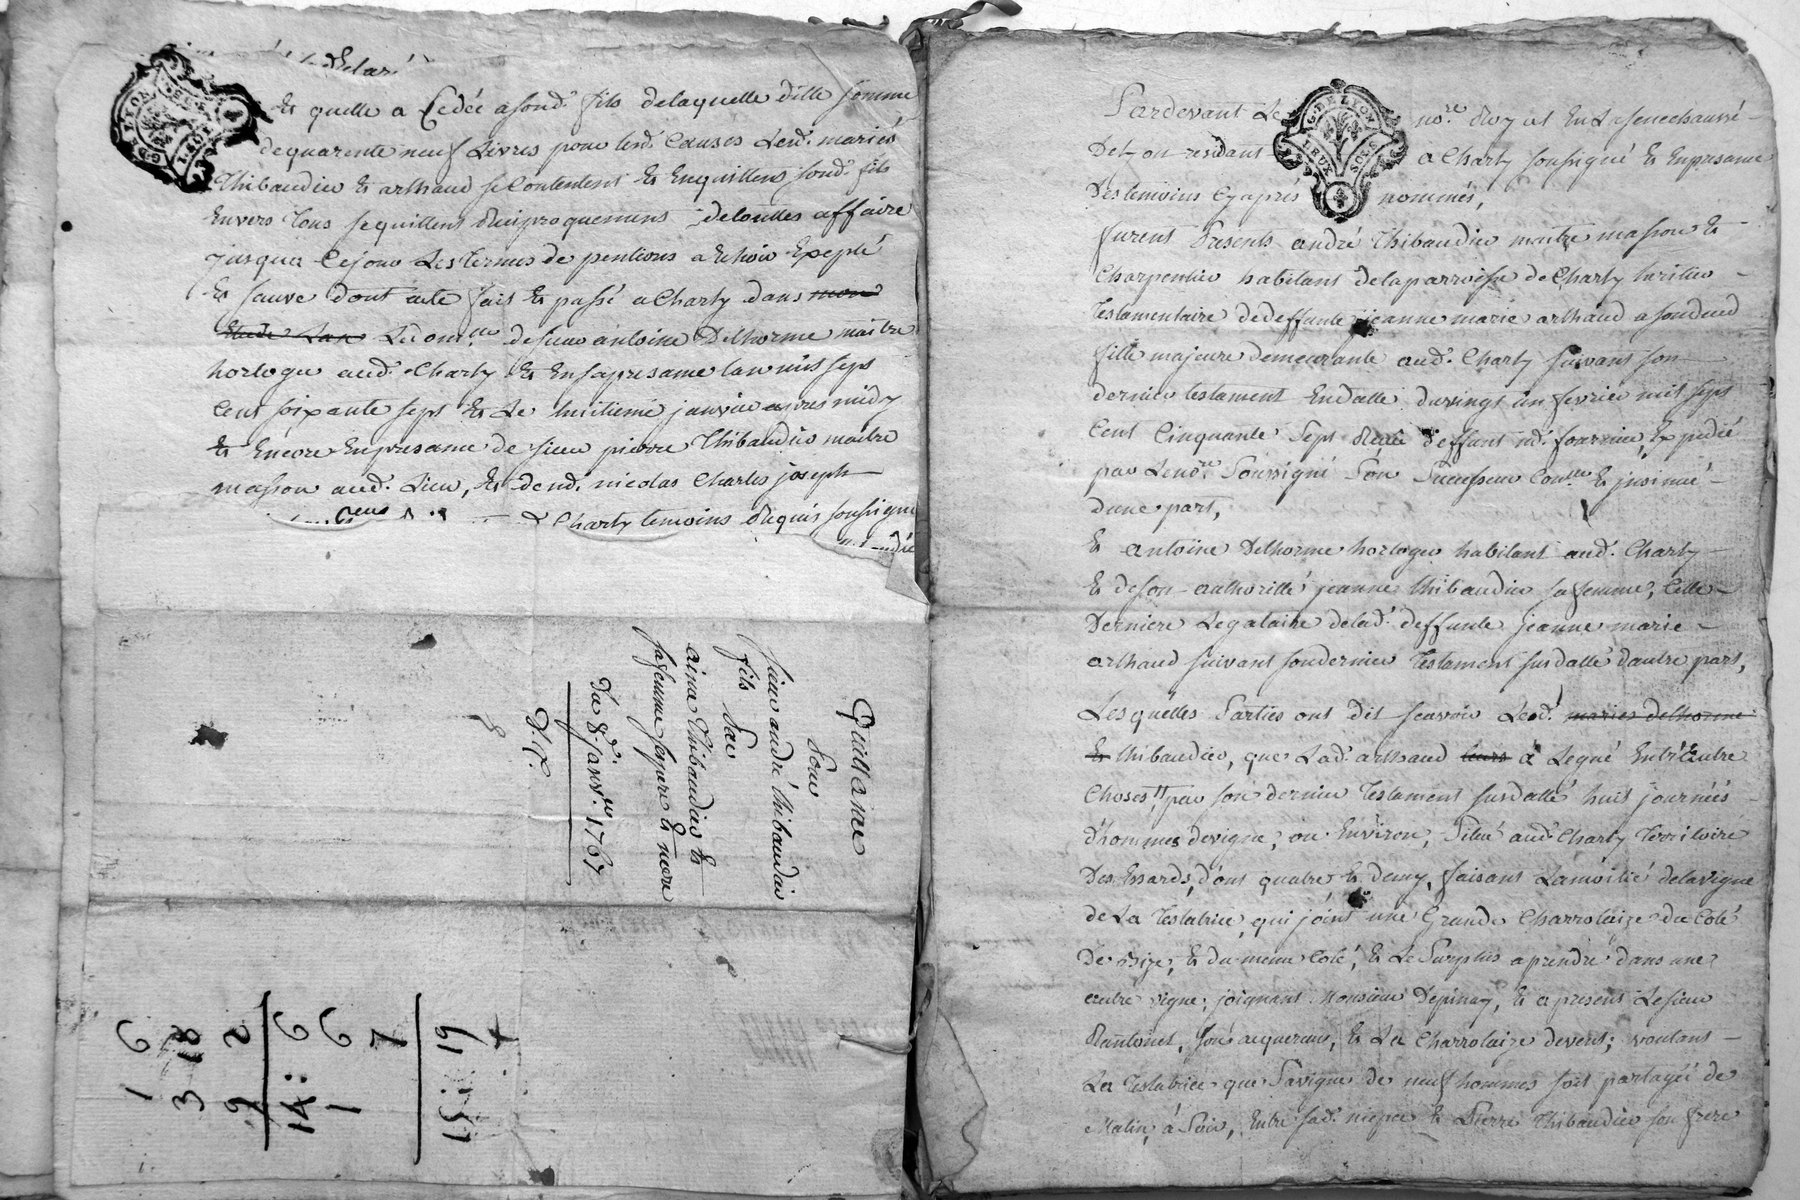 Et quelle a Cedée asond. fils delaquelle ditte somme
dequarente neuf Livres pour lesd. Causes Lesd. mariés
Thibaudier Et arthaud se Contentent Et Enquittent sond. fils
Envers tous sequittent Reciproquement detouttes affaire
jusqua Cejour Lestermes de pentions a Echoir Expepté
Et sauve dont acte fait Et passé a Charly dans mon
Etude Lan Ledom.lle desieur antoine Delhorme maitre
horloger aud. Charly Et Ensapresance lan mil sept
Cent soixante sept Et Le huitieme janvier apres midy
Et Encore Enpresance de sieur pierre Thibaudier maitre
masson aud. Lieu, Et de nicolas Charles joseph
Charly temoins Requis soussigné
Quittance
Pour
sieur andré thibaudier
fils Par
Thibaudier Et
safemme sespere Et mere
Du 8.e janv.er 1767
1 6
3 18
9 2
14: 6
1 6
7
15: 19
G. DE LYON
DEUX SOLS
Pardevant Le no.re Roy al En Lasenechaussé
DeLyon residant a Charly soussigné Et Enpresance
Des temoins Cyaprés nommés,
furent Presents andré Thibaudier maitre masson Et
Charpentier habitant delaparroisse deCharly heritier
Testamentaire dedeffunte jeanne marie arthaud
fille majeure demeurante aud. Charly suivant son
dernier testament Endatte duvingt un fevrier mil sept
Cent Cinquante Sept Reçu deffunt md. fournier, Expedié
par Lenod.re Soussigné Son Successeur Con.lé Et jnsinué
dune part,
Et antoine Delhorme horloger habitant aud. Charly
Et deson authoritté jeanne thibaudier sa femme, Cette
Derniere Legataire delad. deffunte jeanne marie
arthaud suivant sondernier Testament susdatté dautre part,
Lesquelles Parties ont dit scavoir Lesd. mariés delhorme
Et thibaudier, que Lad. arthaud leurs a Legué Entr'Autre
Choses, par son dernier Testament susdatté huit journées
D'hommes devigne, ou Environ, Situé aud. Charly Territoire
Des Essards, dont quatre Et demy, faisant Lamoitié delavigne
de La Testatrice, qui joint une Grande Charrolaize du Coté
De Bize, Et du meme Coté, Et Le Surplus aprendre dans une
autre vigne, joignant Monsieur Depinay, Et apresent Lesieur
Rantonet, son acquereur, Et La Charrolaize devent; voulant
La Testatrice que Savigne de neuf hommes soit partagée de
Matin, á Soir, Entre sad. niepce Et Pierre Thibaudier son frere